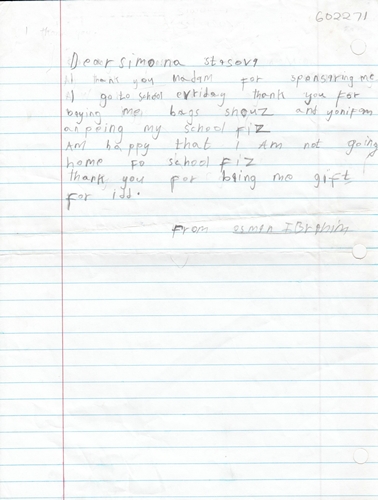 602271
Dear simoina stasova
I thans you Madam for sponsaring me
I go to school evriday thank you for
buying me bags shouz and yonifom
an peing my school fiz
Am happy that I Am not going
home Fo school fiz
thank you for bring me gift
For idd.
From osman IBrahim